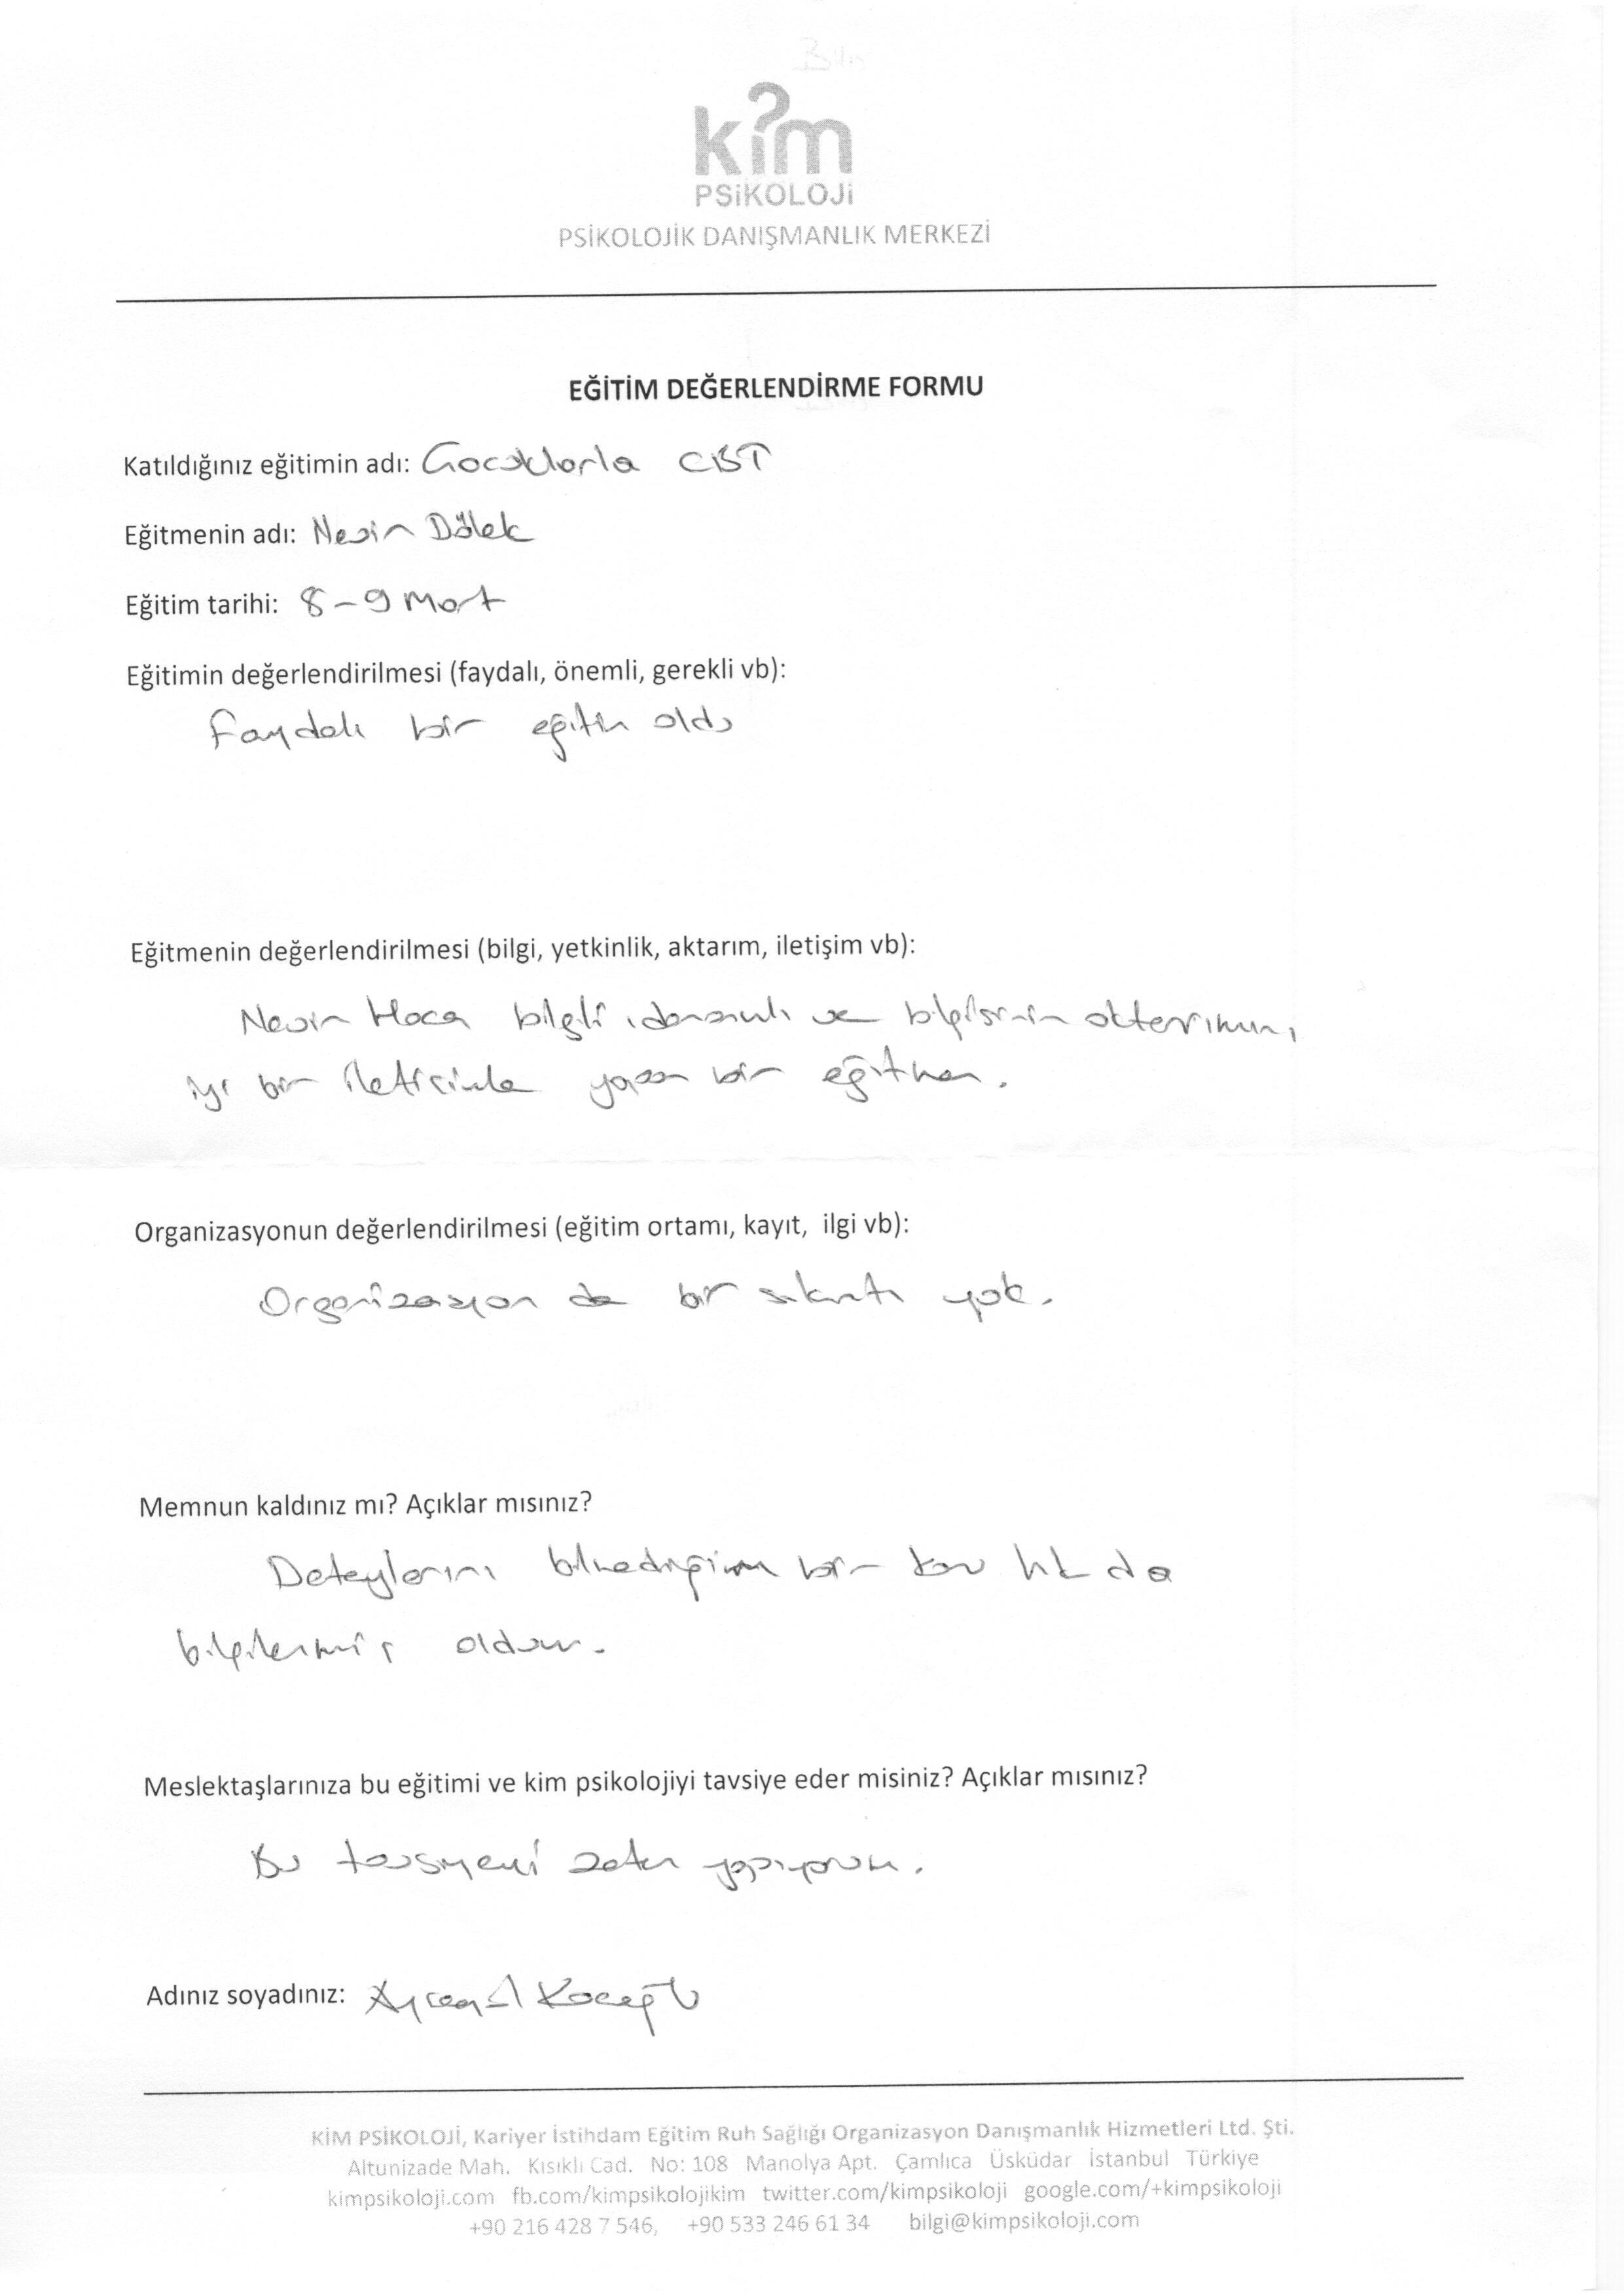 kim
PSiKOLOJi
PSİKOLOJİK DANIŞMANLIK MERKEZİ
EĞİTİM DEĞERLENDİRME FORMU
Katıldığınız eğitimin adı: Çocuklarla CBT
Eğitmenin adı: Nevin Dölek
Eğitim tarihi: 8-9 Mart
Eğitimin değerlendirilmesi (faydalı, önemli, gerekli vb):
Faydalı bir eğitim oldu
Eğitmenin değerlendirilmesi (bilgi, yetkinlik, aktarım, iletişim vb):
Nevin Hoca bilgili, donanımlı ve bilgisinin aktarımını
iyi bir iletişimle yapan bir eğitmen.
Organizasyonun değerlendirilmesi (eğitim ortamı, kayıt, ilgi vb):
Organizasyon da bir sıkıntı yok.
Memnun kaldınız mı? Açıklar mısınız?
Detaylarını bilmediğim bir konu hk da
bilgilenmiş oldum.
Meslektaşlarınıza bu eğitimi ve kim psikolojiyi tavsiye eder misiniz? Açıklar mısınız?
Bu tavsiyemi zaten yapıyorum.
Adınız soyadınız:
KİM PSİKOLOJİ, Kariyer İstihdam Eğitim Ruh Sağlığı Organizasyon Danışmanlık Hizmetleri Ltd. Şti.
Altunizade Mah. Kısıklı Cad. No: 108 Manolya Apt. Çamlıca Üsküdar İstanbul Türkiye
kimpsikoloji.com fb.com/kimpsikolojikim twitter.com/kimpsikoloji google.com/+kimpsikoloji
+90 216 428 7 546, +90 533 246 61 34 bilgi@kimpsikoloji.com